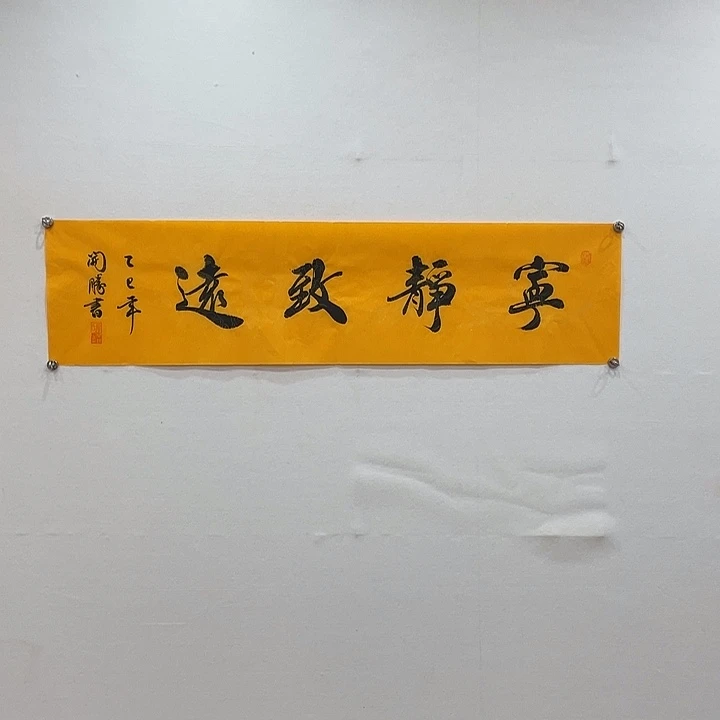 寧靜致遠
乙巳年
開勝書